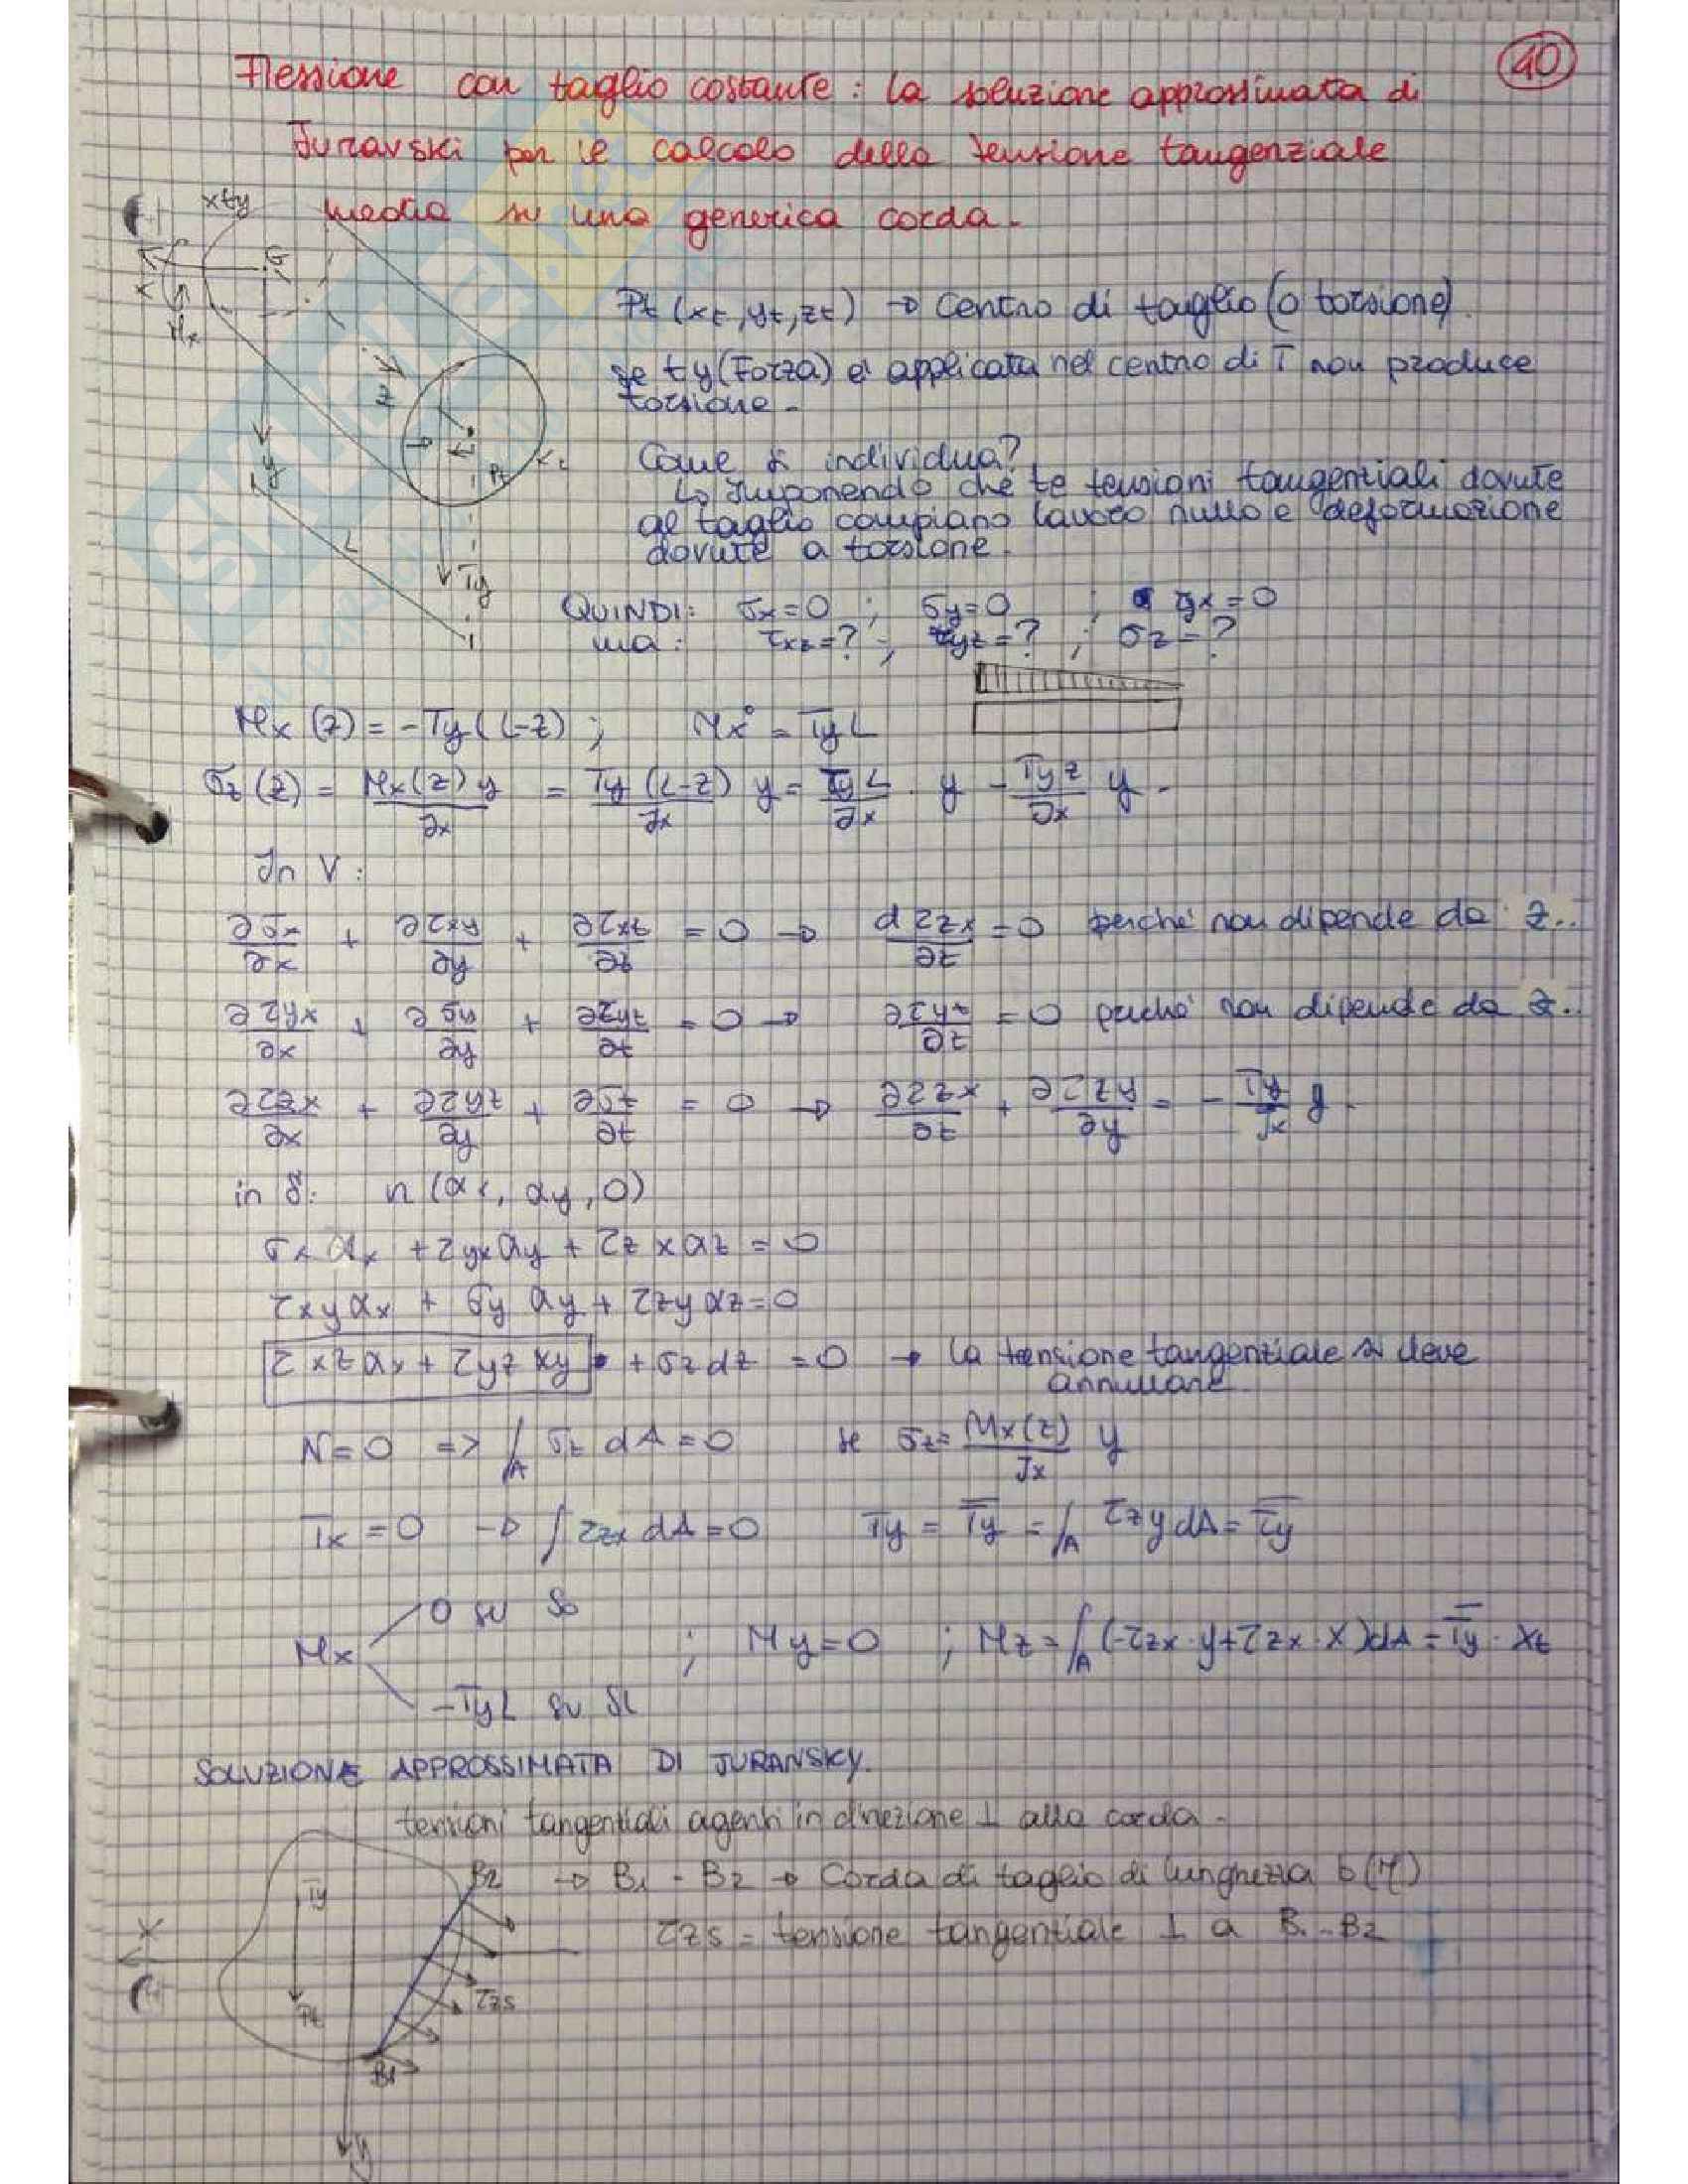 40
Flessione con taglio costante: la soluzione approssimata di
Juravski per il calcolo della tensione tangenziale
media su una generica corda.
Pt (xt, yt, zt) → Centro di taglio (o torsione).
se ty (Forza) è applicata nel centro di T non produce
torsione.
Come si individua?
↳ Imponendo che le tensioni tangenziali dovute
al taglio compiano lavoro nullo e deformazione
dovute a torsione.
z
Pt
y
L
Ty
QUINDI: σx=0 ; σy=0 ; τyx=0
ma: τxz=? ; τyz=? ; σz=?
Mx (z) = -Ty (L-z) ; Mx° = Ty L
σz (z) = Mx(z) y / Jx = Ty (L-z) / Jx y = Ty L / Jx · y - Ty z / Jx y.
In V:
∂σx/∂x + ∂τxy/∂y + ∂τxz/∂z = 0 → dτzx/∂z = 0 perché non dipende da z..
∂τyx/∂x + ∂σy/∂y + ∂τyz/∂z = 0 → ∂τyz/∂z = 0 perché non dipende da z..
∂τzx/∂x + ∂τyz/∂y + ∂σz/∂z = 0 → ∂τzx/∂z + ∂τzy/∂y = - Ty/Jx y.
in S: n (αx, αy, 0)
σx αx + τyx αy + τzx αz = 0
τxy αx + σy αy + τzy αz = 0
τxz αx + τyz αy + σz αz = 0 → la tensione tangenziale si deve
annullare.
N=0 => ∫A σz dA = 0 se σz = Mx(z)/Jx y
Tx = 0 → ∫ τzx dA = 0 Ty = Ty = ∫A τzy dA = Ty
0 su S0
Mx ; My = 0 ; Mz = ∫A (-τzx·y + τzx·x) dA = Ty · xt
-TyL su SL
SOLUZIONE APPROSSIMATA DI JURANSKY.
tensioni tangenziali agenti in direzione ⊥ alla corda.
B2 → B1 - B2 → Corda di taglio di lunghezza b(η)
τzs = tensione tangenziale ⊥ a B1-B2
Ty
x
τzs
Pt
B1
y